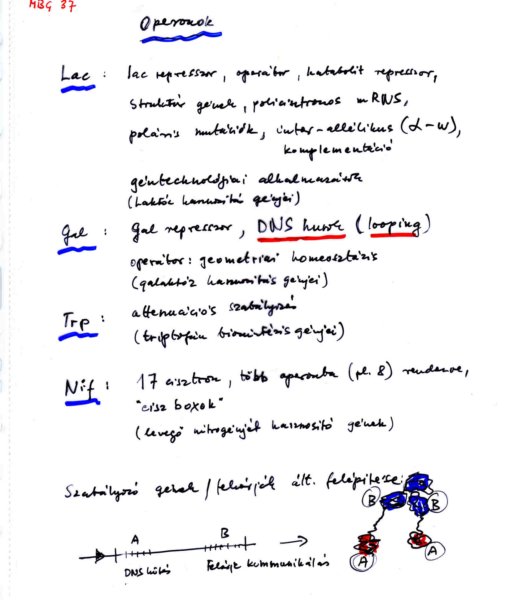 MBG 37
Operonok
Lac : lac repressor, operátor, katabolit repressor,
struktúr gének, policisztronos mRNS,
poláris mutációk, inter-allélikus (α-ω),
komplementáció
géntechnológiai alkalmazások
(laktóz hasznosító génjei)
Gal : Gal repressor, DNS hurok (looping)
operátor: geometriai homeosztázis
(galaktóz hasznosítás génjei)
Trp : attenuációs szabályozás
(triptofán bioszintézis génjei)
Nif : 17 cisztron, több operonba (pl. 8) rendezve,
"cisz boxok"
(levegő nitrogénjét hasznosító gének)
Szabályozó gének / fehérjék ált. felépítése:
A B
DNS kötés Fehérje kommunikálás
B B
A A